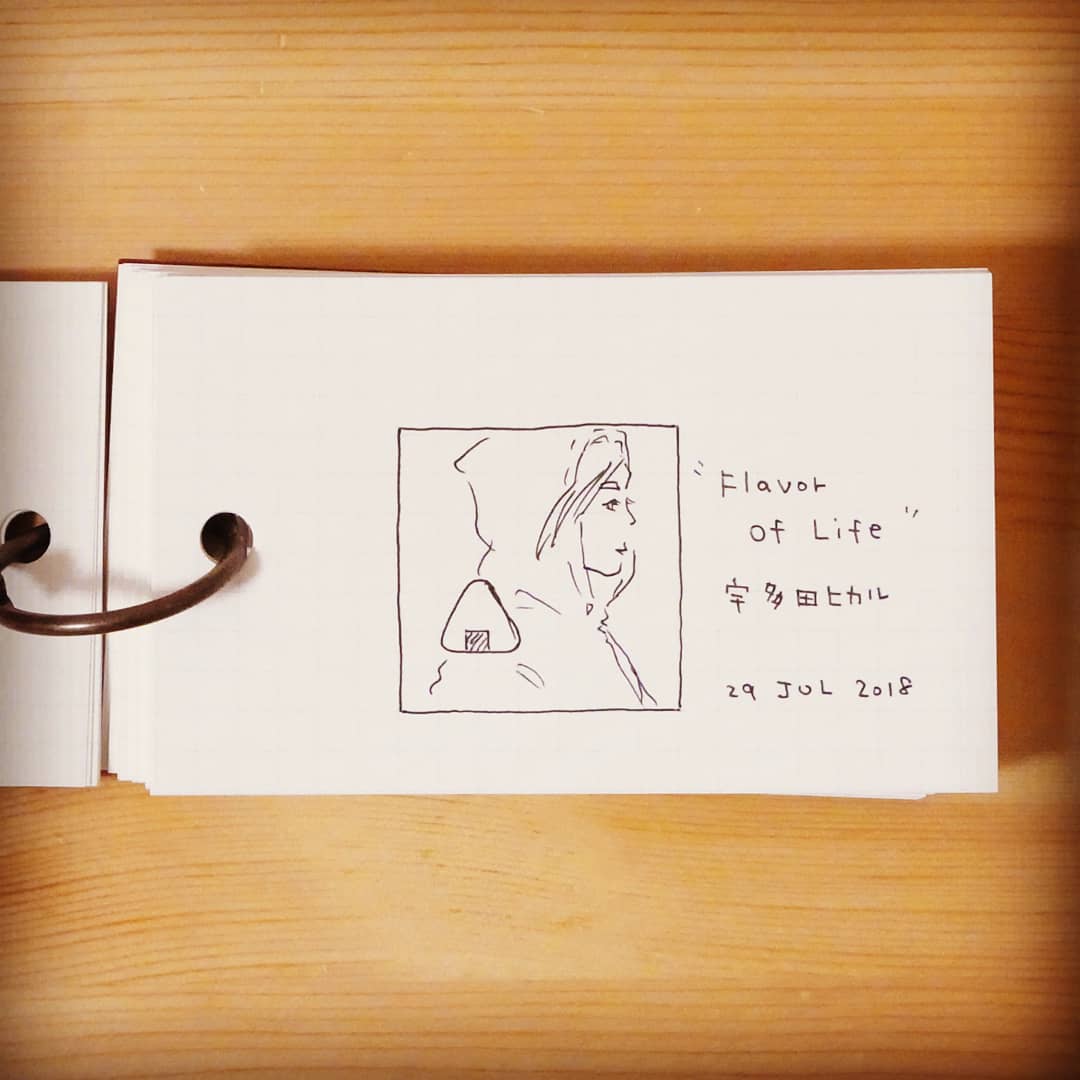 "Flavor
of Life"
宇多田ヒカル
29 JUL 2018